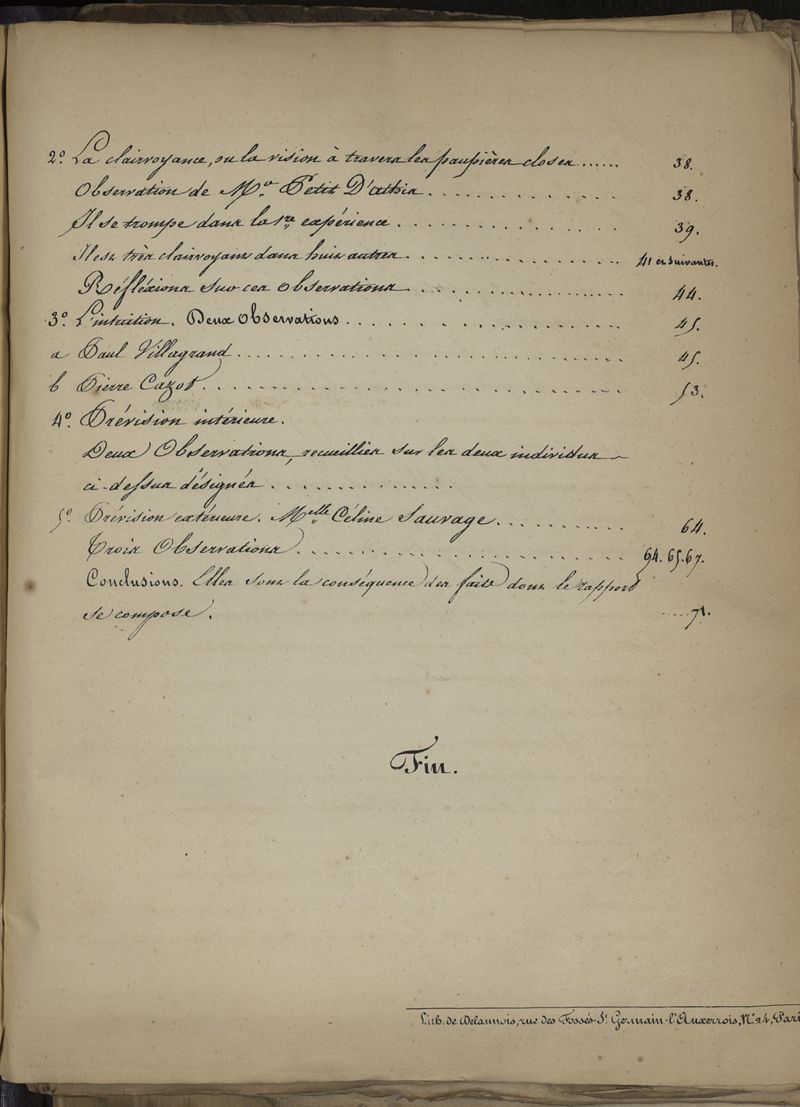 2º. La clairvoyance, ou la vision à travers les paupières closes...... 38.
Observation de Mr. Petit D'athis.............. 38.
Il se trompe dans la 1re expérience.............. 39.
Il est très clairvoyant dans huit autres.............. 41 et suivantes.
Réfléxions sur ces Observations.............. 44.
3º. L'intuition. Deux Observations.............. 45.
a Paul Villagrand.............. 45.
b Pierre Cazot.............. 53.
4º. Prévision intérieure.
Deux Observations, recueillies sur les deux individus
ci-dessus désignés..............
5º. Prévision extérieure. Melle Céline Sauvage.......... 64.
Trois Observations.............. 64. 65. 67.
Conclusions. Elles sont la conséquence des faits dont le rapport
se compose. ..... 71.
Fin.
Lith. de Delaunois, rue des Fossés-St. Germain-l'Auxerrois, No. 24, Pari